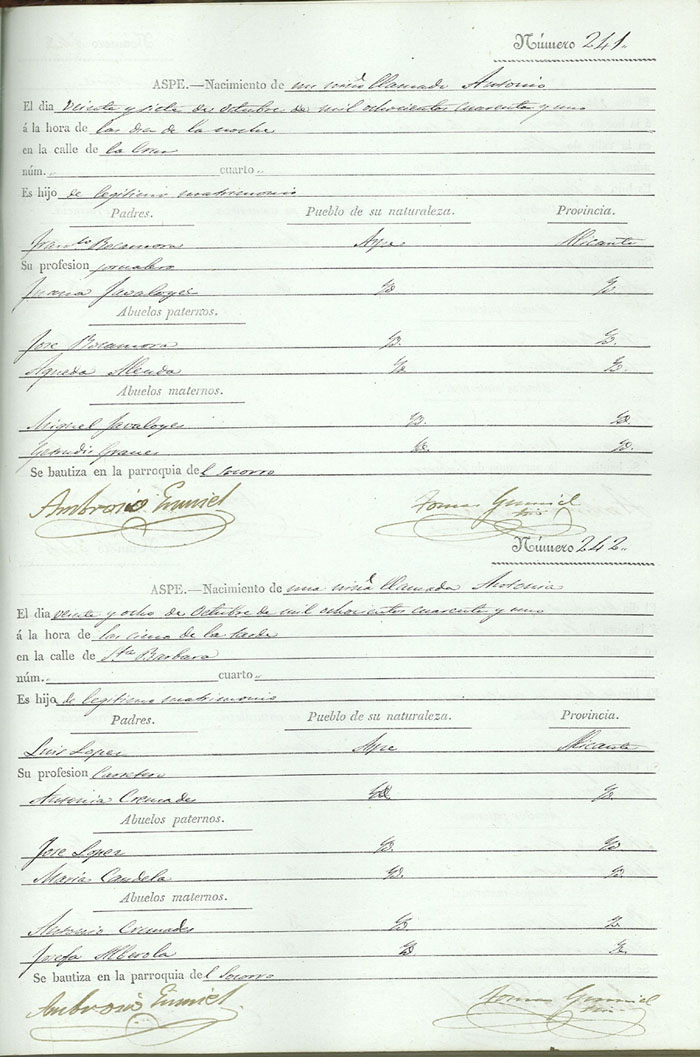 Número 241.
ASPE.—Nacimiento de un niño llamado Antonio
El dia veinte y siete de octubre de mil ochocientos cuarenta y uno
á la hora de las dos de la noche
en la calle de la Cruz
núm. „ cuarto „
Es hijo de legitimo matrimonio
Padres. Pueblo de su naturaleza. Provincia.
Franco Bocamora Aspe Alicante
Su profesion jornalero
Juana Javaloyes Yd. Yd.
Abuelos paternos.
Jose Bocamora Yd. Yd.
Agueda Alenda Yd. Yd.
Abuelos maternos.
Miguel Javaloyes Yd. Yd.
Yd. Yd.
Se bautiza en la parroquia del Socorro
Ambrosio Tomas
Número 242.
ASPE.—Nacimiento de una niña llamada Antonia
El dia veinte y ocho de octubre de mil ochocientos cuarenta y uno
á la hora de las cinco de la tarde
en la calle de Sta Barbara
núm. cuarto „
Es hijo de legitimo matrimonio
Padres. Pueblo de su naturaleza. Provincia.
Luis Lopez Aspe Alicante
Su profesion Carretero
Antonia Cremades Yd. Yd.
Abuelos paternos.
Jose Lopez Yd. Yd.
Maria Candela Yd. Yd.
Abuelos maternos.
Antonio Cremades Yd. Yd.
Josefa Alberola Yd. Yd.
Se bautiza en la parroquia del Socorro
Ambrosio Tomas